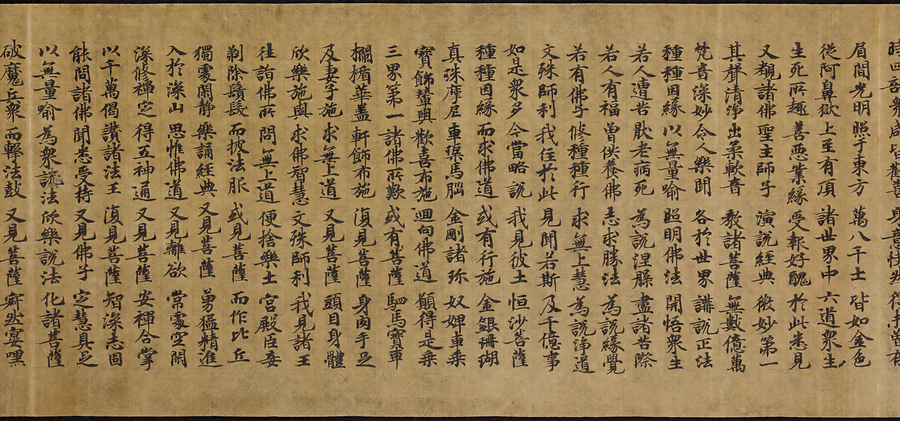 時四部衆咸皆歡喜 身意快然得未曾有
眉間光明 照于東方 萬八千土 皆如金色
從阿鼻獄 上至有頂 諸世界中 六道衆生
生死所趣 善惡業緣 受報好醜 於此悉見
又覩諸佛 聖主師子 演說經典 微妙第一
其聲清淨 出柔軟音 教諸菩薩 無數億萬
梵音深妙 令人樂聞 各於世界 講說正法
種種因緣 以無量喻 照明佛法 開悟衆生
若人遭苦 厭老病死 為說涅槃 盡諸苦際
若人有福 曾供養佛 志求勝法 為說緣覺
若有佛子 修種種行 求無上慧 為說淨道
文殊師利 我住於此 見聞若斯 及千億事
如是衆多 今當略說 我見彼土 恒沙菩薩
種種因緣 而求佛道 或有行施 金銀珊瑚
真珠摩尼 車𤦲馬腦 金剛諸珍 奴婢車乘
寶飾輦輿 歡喜布施 迴向佛道 願得是乘
三界第一 諸佛所歎 或有菩薩 駟馬寶車
欄楯華蓋 軒飾布施 復見菩薩 身肉手足
及妻子施 求無上道 又見菩薩 頭目身體
欣樂施與 求佛智慧 文殊師利 我見諸王
往詣佛所 問無上道 便捨樂土 宮殿臣妾
剃除鬚髮 而披法服 或見菩薩 而作比丘
獨處閑靜 樂誦經典 又見菩薩 勇猛精進
入於深山 思惟佛道 又見離欲 常處空閑
深修禪定 得五神通 又見菩薩 安禪合掌
以千萬偈 讚諸法王 復見菩薩 智深志固
能問諸佛 聞悉受持 又見佛子 定慧具足
以無量喻 為衆說法 欣樂說法 化諸菩薩
破魔兵衆 而擊法鼓 又見菩薩 寂然宴嘿